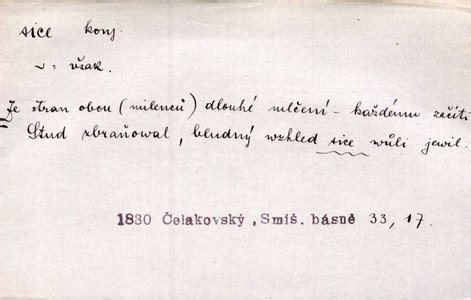 sice konj
v = však.
Ze stran obou (milenců) dlouhé mlčení – každému začíti
Stud zbraňoval, bludný wzhled sice wůli jewil.
1830 Čelakovský, Smíš. básně 33, 17.